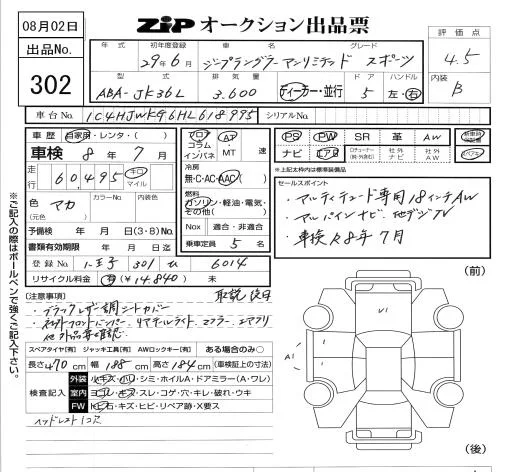 08月02日
ZiP オークション出品票
出品No.
302
年式 初年度登録 車名 グレード
29年6月 ジープラングラーアンリミテッド スポーツ
型式 排気量 ドア ハンドル
ABA-JK36L 3.600 ディーラー・並行 5 左・右
評価点
4.5
内装
B
車台No. 1C4HJWKG6HL618995 シリアルNo.
車歴 自家用・レンタ・( )
車検 8年7月
走行 60,495 キロ マイル
色 マカ (元色) カラーNo. 内装色
予備検 年 月 日(3・8)No.
書類有効期限 年 月 日迄
登録No. 八王子 301 6014
リサイクル料金 有(¥14,840) 未
フロア コラム インパネ AT・MT 速
冷房
無・C・AC・AAC
燃料
ガソリン・軽油・電気・その他( )
Nox 適合・非適合
乗車定員 5名
PS PW SR 革 AW
ナビ エアB
社外ナビ 社外AW
※上記太枠内は装備品
セールスポイント
18インチAW
・アルパインナビ 地デジTV
・車検R8年7月
(注意事項) 取説後日
・ブラックレザー調シートカバー
スペアタイヤ[有] ジャッキ工具[有] AWロックキー[有] ある場合のみ○
長さ470cm 幅188cm 高さ184cm (車検証上の寸法)
検査記入
外装 小キズ・凹・シミ・ホイルA・ドアミラー(A・ワレ)
室内 ヨゴレ・キズ・スレ・コゲ・穴・キレ・破れ・ウキ
FW 飛石・キズ・ヒビ・リペア跡・X要ス
(前)
U1
A1
(後)
※ご記入の際はボールペンで強くご記入下さい。